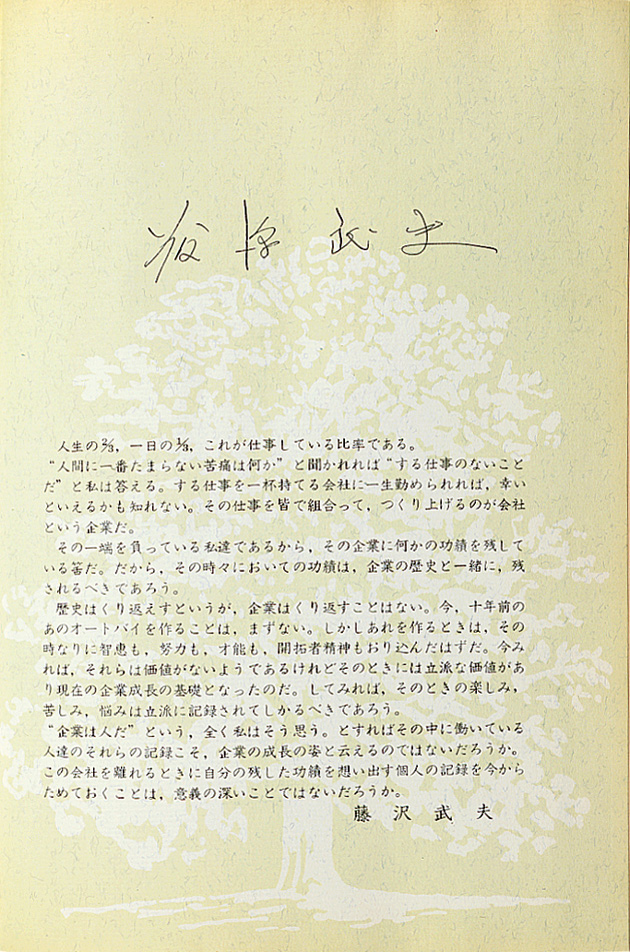 人生の⅔，一日の⅓，これが仕事している比率である。
“人間に一番たまらない苦痛は何か”と聞かれれば“する仕事のないこと
だ”と私は答える。する仕事を一杯持てる会社に一生勤められれば，幸い
といえるかも知れない。その仕事を皆で組合って，つくり上げるのが会社
という企業だ。
その一端を負っている私達であるから，その企業に何かの功績を残して
いる筈だ。だから，その時々においての功績は，企業の歴史と一緒に，残
されるべきであろう。
歴史はくり返えすというが，企業はくり返すことはない。今，十年前の
あのオートバイを作ることは，まずない。しかしあれを作るときは，その
時なりに智恵も，努力も，才能も，開拓者精神もおり込んだはずだ。今み
れば，それらは価値がないようであるけれどそのときには立派な価値があ
り現在の企業成長の基礎となったのだ。してみれば，そのときの楽しみ，
苦しみ，悩みは立派に記録されてしかるべきであろう。
“企業は人だ”という，全く私はそう思う。とすればその中に働いている
人達のそれらの記録こそ，企業の成長の姿と云えるのではないだろうか。
この会社を離れるときに自分の残した功績を想い出す個人の記録を今から
ためておくことは，意義の深いことではないだろうか。
藤沢武夫